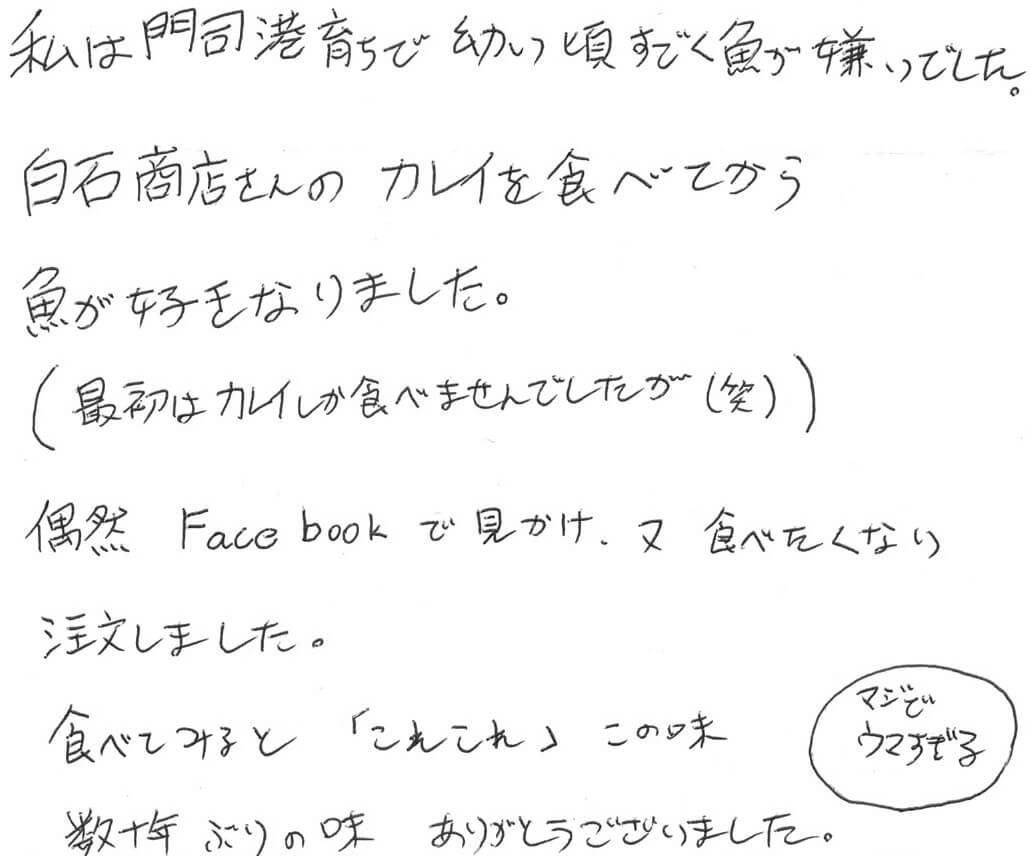 私は門司港育ちで幼い頃すごく魚が嫌いでした。
白石商店さんの カレイを食べてから
魚が好きなりました。
(最初はカレイしか食べませんでしたが(笑))
偶然 Facebookで見かけ、又 食べたくなり
注文しました。
食べてみると 「これこれ」 この味
マジで
ウマすぎる
数十年ぶりの味 ありがとうございました。